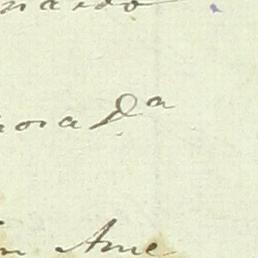 nardo
nora Da
in Ame